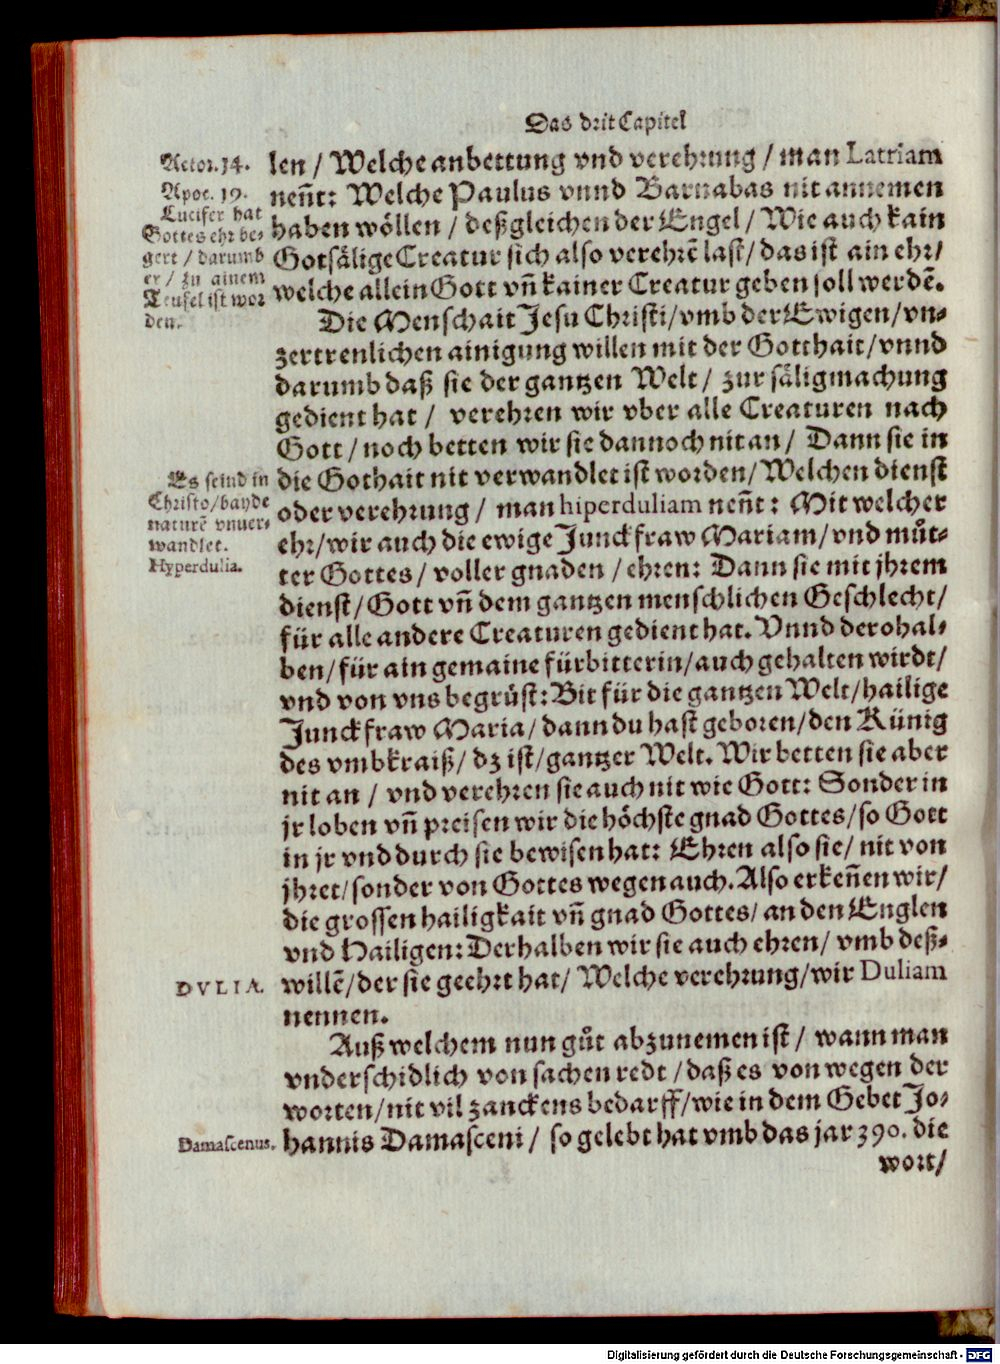 Das drit Capitel
Actor. 14.
Apoc. 19.
Lucifer hat
Gottes ehr be-
gert / darumb
er / zu ainem
Teufel ist wor
den.
len / Welche anbettung vnd verehrung / man Latriam
neñt: Welche Paulus vnnd Barnabas nit annemen
haben wöllen / deßgleichen der Engel / Wie auch kain
Gotsälige Creatur sich also verehrē last / das ist ain ehr /
welche allein Gott vñ kainer Creatur geben soll werdē.
Die Menschait Jesu Christi / vmb der Ewigen / vn-
zertrenlichen ainigung willen mit der Gotthait / vnnd
darumb daß sie der gantzen Welt / zur säligmachung
gedient hat / verehren wir vber alle Creaturen nach
Gott / noch betten wir sie dannoch nit an / Dann sie in
Es seind in
Christo / bayde
naturē vnuer-
wandlet.
Hyperdulia.
die Gothait nit verwandlet ist worden / Welchen dienst
oder verehrung / man hiperduliam neñt: Mit welcher
ehr / wir auch die ewige Junckfraw Mariam / vnd muͤt-
ter Gottes / voller gnaden / ehren: Dann sie mit jhrem
dienst / Gott vñ dem gantzen menschlichen Geschlecht /
für alle andere Creaturen gedient hat. Vnnd derohal-
ben / für ain gemaine fürbitterin / auch gehalten wirdt /
vnd von vns begruͤst: Bit für die gantzen Welt / hailige
Junckfraw Maria / dann du hast geboren / den Künig
des vmbkraiß / dz ist / gantzer Welt. Wir betten sie aber
nit an / vnd verehren sie auch nit wie Gott: Sonder in
jr loben vñ preisen wir die höchste gnad Gottes / so Gott
in jr vnd durch sie bewisen hat: Ehren also sie / nit von
jhret / sonder von Gottes wegen auch. Also erkeñen wir /
die grossen hailigkait vñ gnad Gottes / an den Englen
vnd Hailigen: Derhalben wir sie auch ehren / vmb deß-
DVLIA.
willē / der sie geehrt hat / Welche verehrung / wir Duliam
nennen.
Auß welchem nun guͤt abzunemen ist / wann man
vnderschidlich von sachen redt / daß es von wegen der
worten / nit vil zanckens bedarff / wie in dem Gebet Jo-
Damascenus.
hannis Damasceni / so gelebt hat vmb das jar 390. die
wort /
Digitalisierung gefördert durch die Deutsche Forschungsgemeinschaft - DFG